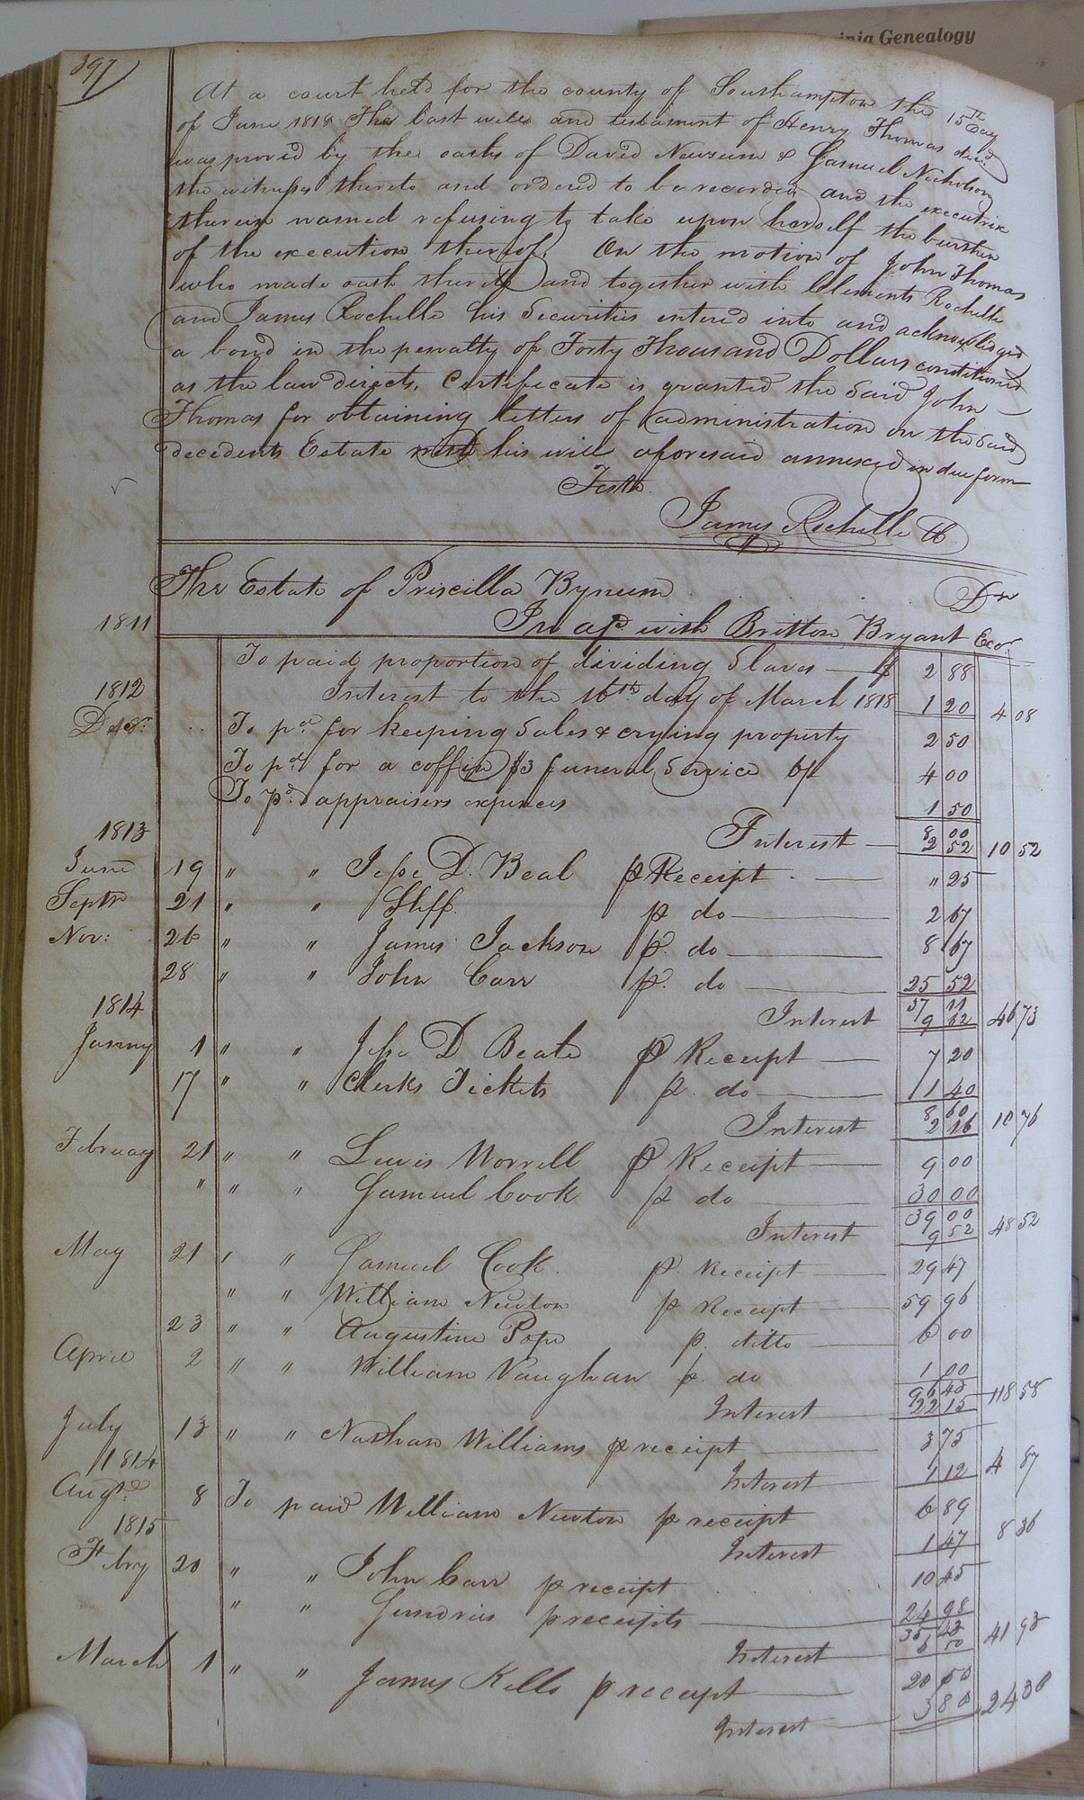 inia Genealogy
397
At a court held for the county of Southampton the 15th Day
of June 1818 The last will and testament of Henry Thomas decd
was proved by the oaths of David Newsum & Samuel Nicholson
the witnesses thereto and ordered to be recorded, and the executrix
therein named refusing to take upon herself the burthen
of the execution thereof. On the motion of John Thomas
who made oath thereto and together with Clements Rochelle
and James Rochelle his Securities entered into and acknowledged
a bond in the penalty of Forty Thousand Dollars conditioned
as the law directs, Certificate is granted the said John
Thomas for obtaining letters of administration on the said
decedents Estate with his will aforesaid annexed in due form
Teste
James Rochelle
The Estate of Priscilla Bynum Dr
In a/c with Britton Bryant Exor
1811
To paid proportion of dividing Slaves 2 88
1812 Interest to the 16th day of March 1818 1 20 4 08
To pd for keeping Sales & crying property 2 50
To pd for a coffin $3 funeral Service 6/ 4 00
To pd appraisers expences 1 50
8 00
1813 Interest 2 52 10 52
June 19 " " Jesse D. Beal p Receipt " 25
Septr 21 " " Shff. p do 2 67
Nov: 26 " " James Jackson p. do 8 67
28 " " John Carr p. do 25 52
37 11
1814 Interest 9 62 46 73
Janny 1 " " Jesse D Beale p Receipt 7 20
17 " " Clerks Tickets p. do 1 40
8 60
Interest 2 16 10 76
February 21 " " Lewis Worrell p Receipt 9 00
" " " Samuel Cook p do 30 00
39 00
Interest 9 52 48 52
May 21 " " Samuel Cook. p. Receipt 29 47
" " William Newton p Receipt 59 96
23 " " Augustine Pope p. ditto 6 00
April 2 " " William Vaughan p. do 1 00
96 43
Interest 22 15 118 58
July 13 " " Nathan Williams p receipt 3 75
1814 Interest 1 12 4 87
Augt 8 To paid William Newton p receipt 6 89
1815 Interest 1 47 8 36
Febry 20 " " John Carr p receipt 10 45
" " Sundries p receipts 24 98
35 43
Interest 6 50 41 93
March 1 " " James Kello p receipt 20 50
Interest 3 80 24 30